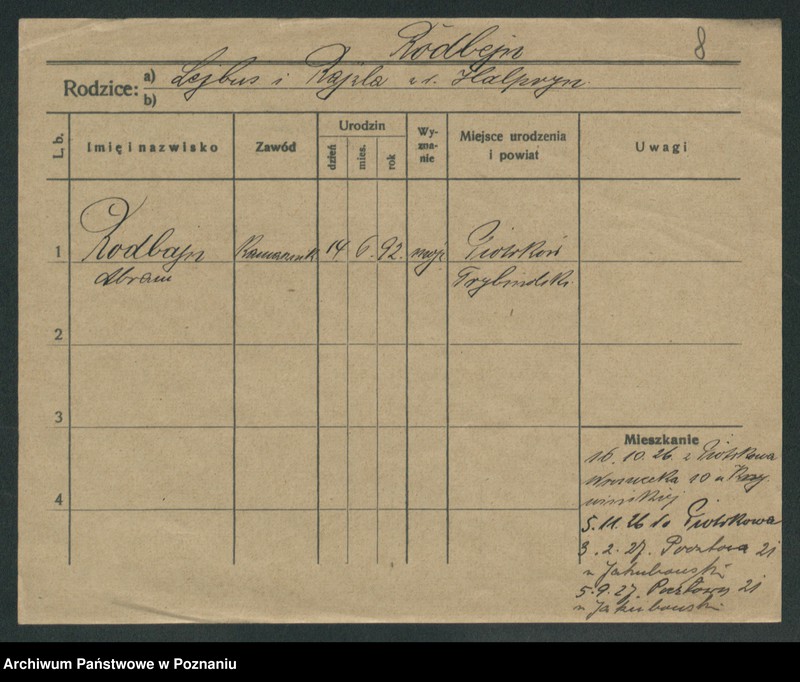 Rodbejn 8
Rodzice: a) Lejbus i Rajzla z d. Halpryn
b)
L. b. Imię i nazwisko Zawód Urodzin dzień mies. rok Wy-zna-nie Miejsce urodzenia i powiat Uwagi
1 Rodbajn 14 6. 92. mojż Piotrków
Abram Trybunalski
2
3
Mieszkanie
16.10.26. z Piotrkowa
4 10 u
5.11.26 do Piotrkowa
3.2.27. Pocztowa 21
u Jakubowski
5.9.27. Pocztowa 21
u Jakubowski
Archiwum Państwowe w Poznaniu